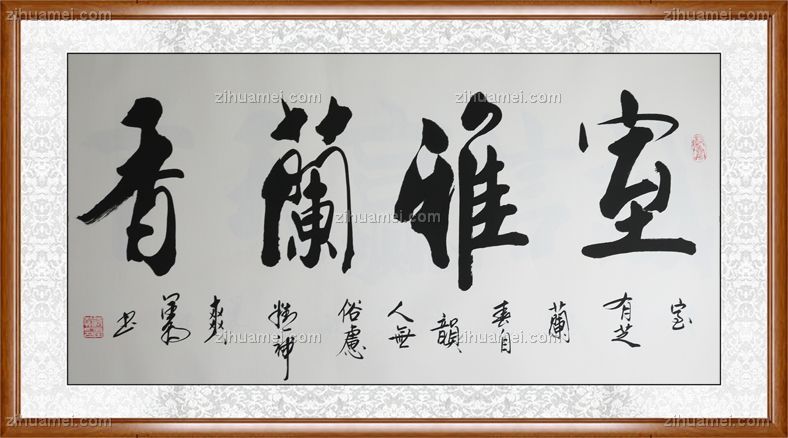 室雅蘭香
室有芝蘭春自韻人無俗慮精神爽
書
zihuamei.com
zihuamei.com
zihuamei.com
zihuamei.com
zihuamei.com
zihuamei.com
zihuamei.com
zihuamei.com
zihuamei.com
zihuamei.com
zihuamei.com
zihuamei.com